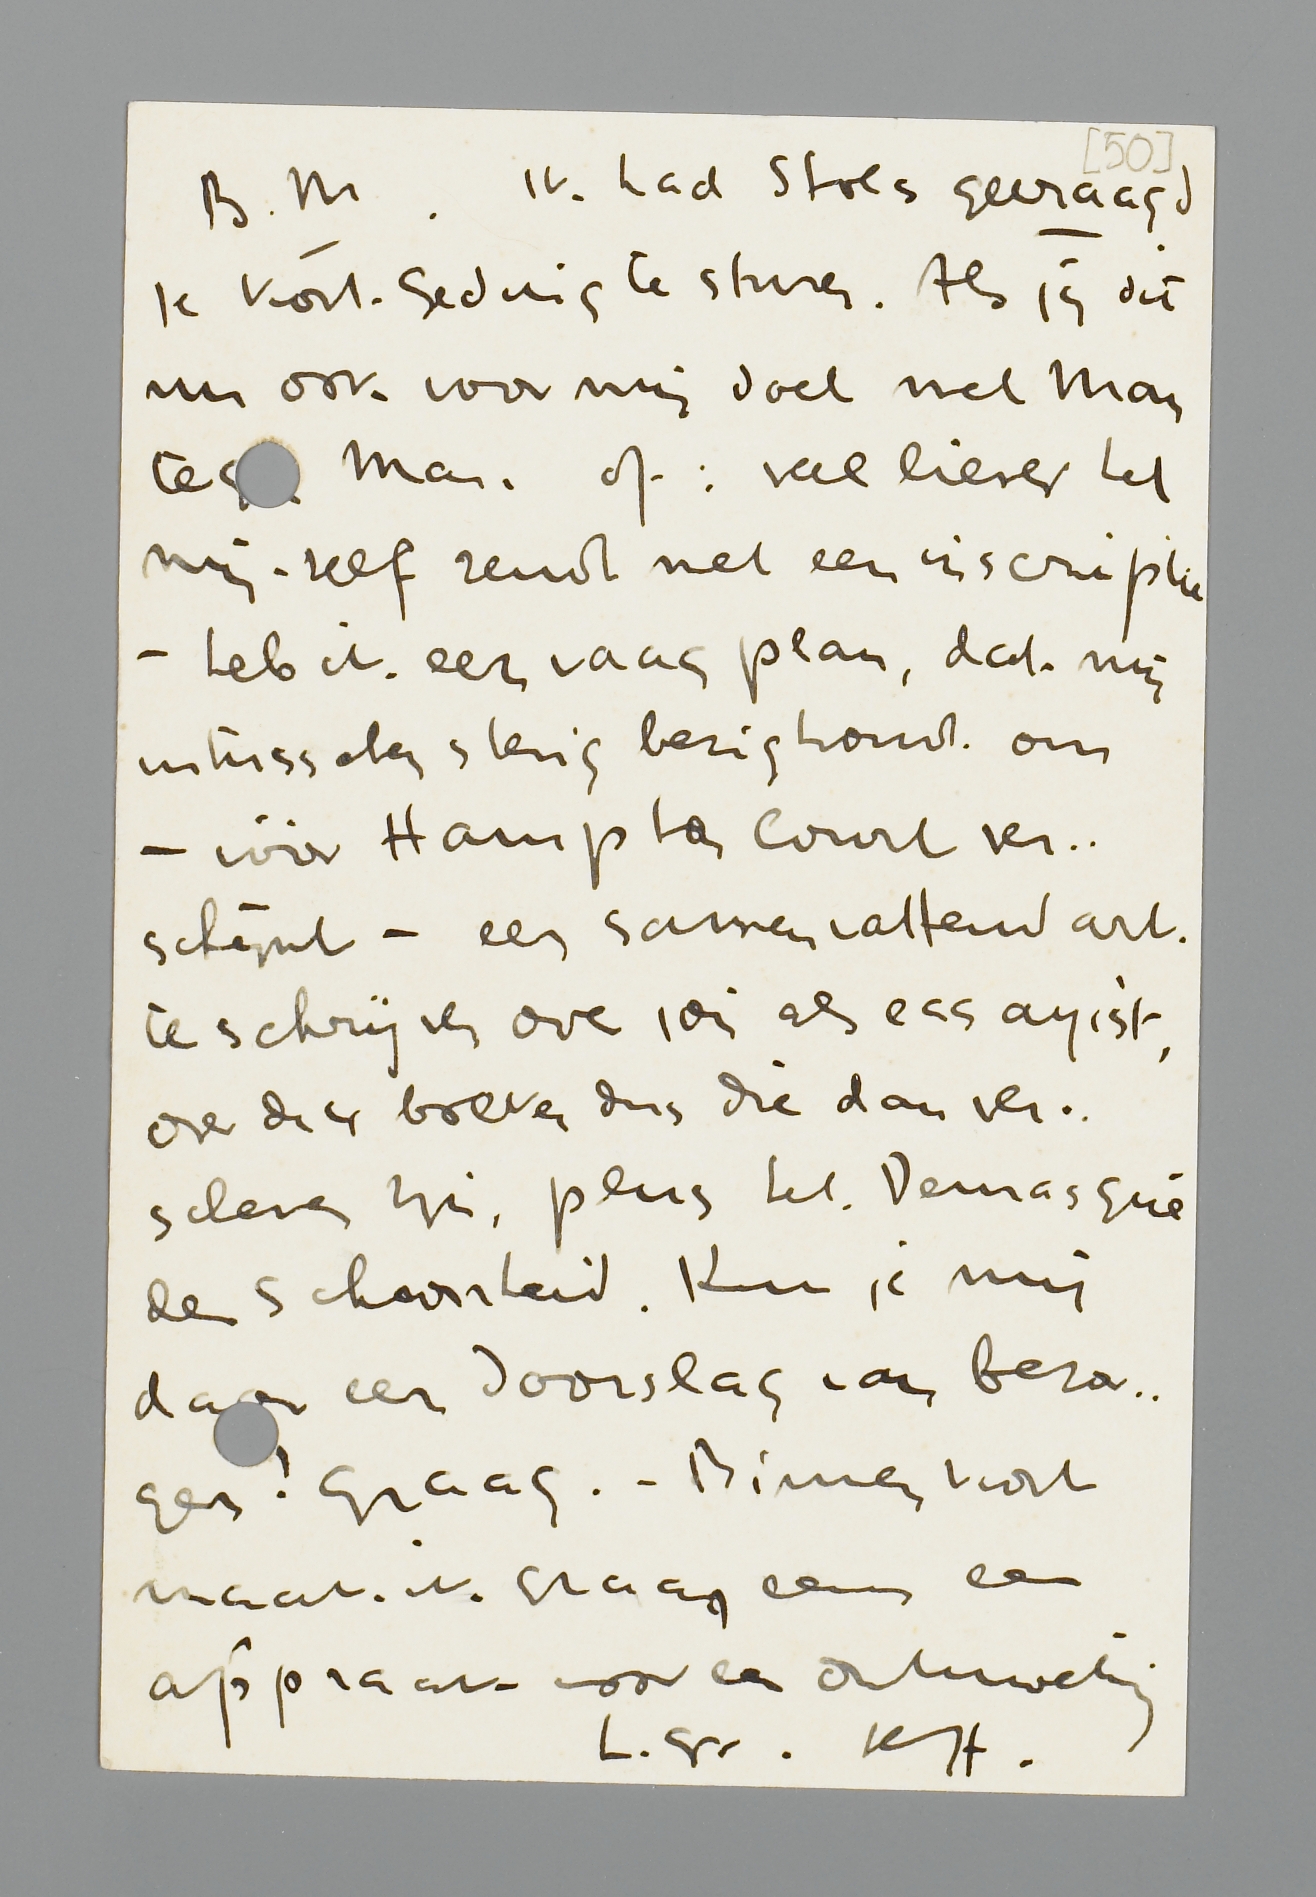 [50]
B. M. Ik had Stols gevraagd
je Kort Geding te sturen. Als jij dit
nu ook voor mij doet met Man
tegen Man. of: veel liever het
mij-zelf zendt met een inscriptie
- heb ik een vaag plan, dat mij
intusschen stevig bezighoudt om
- vóór Hampton Court ver..
schijnt - een samenvattend art.
te schrijven over jou als essayist,
over drie boeken dus die dan ver..
schenen zijn, plus het Démasqué
der Schoonheid. Kun je mij
daar een doorslag van bezor..
gen? Graag. - Binnenkort
maak ik graag eens een
afspraak voor een ontmoeting
h. gr. KH.